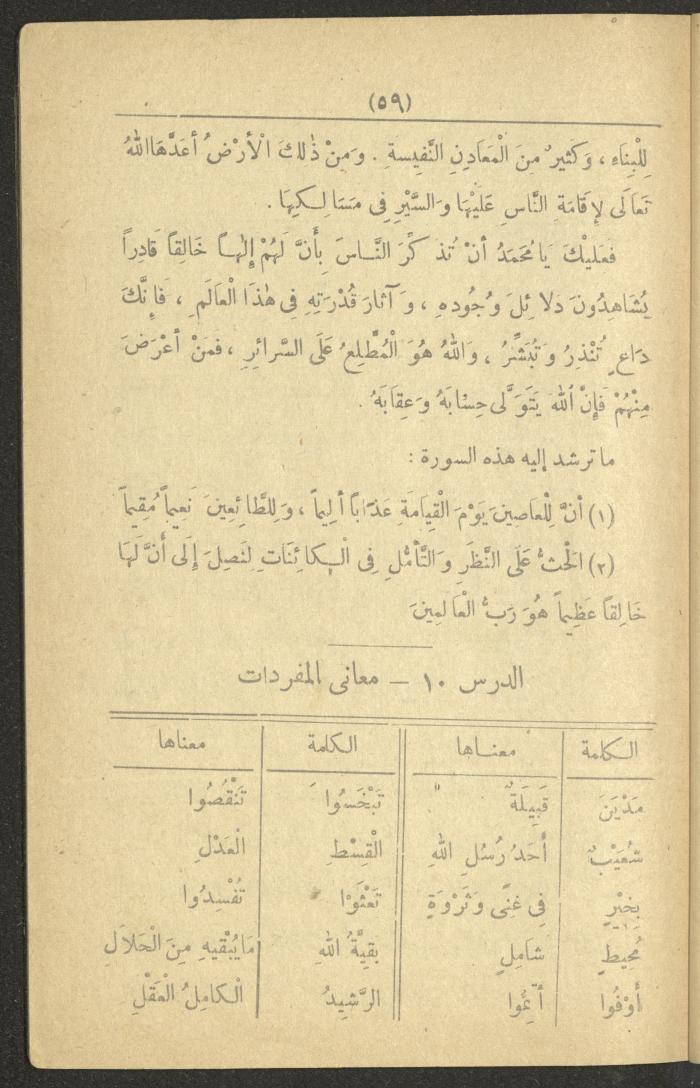 (٥٩)
لِلْبِنَاءِ ، وَكَثِيرٌ مِنَ الْمَعَادِنِ النَّفِيسَةِ . وَمِنْ ذٰلِكَ الْأَرْضُ أَعَدَّهَا اللهُ
تَعَالَى لِإِقَامَةِ النَّاسِ عَلَيْهَا وَالسَّيْرِ فِى مَسَالِكِهَا .
فَعَلَيْكَ يَا مُحَمَّدُ أَنْ تُذَكِّرَ النَّاسَ بِأَنَّ لَهُمْ إِلٰهًا خَالِقاً قَادِراً
يُشَاهِدُونَ دَلَائِلَ وُجُودِهِ ، وَآثَارَ قُدْرَتِهِ فِى هٰذَا الْعَالَمِ ، فَإِنَّكَ
دَاعٍ تُنْذِرُ وَتُبَشِّرُ ، وَاللهُ هُوَ الْمُطَّلِعُ عَلَى السَّرَائِرِ ، فَمَنْ أَعْرَضَ
مِنْهُمْ فَإِنَّ اللهَ يَتَوَلَّى حِسَابَهُ وَعِقَابَهُ .
ما ترشد إليه هذه السورة :
(١) أَنَّ لِلْعَاصِينَ يَوْمَ الْقِيَامَةِ عَذَاباً أَلِيماً ، وَلِلطَّائِعِينَ نَعِيماً مُقِيماً
(٢) الْحَثُّ عَلَى النَّظَرِ وَالتَّأَمُّلِ فِى الْكَائِنَاتِ لِنَصِلَ إِلَى أَنَّ لَهَا
خَالِقاً عَظِيماً هُوَ رَبُّ الْعَالَمِينَ
الدرس ١٠ — معانى المفردات
الكلمة معناها الكلمة معناها
مَدْيَنَ قَبِيلَةٌ تَبْخَسُوا تَنْقُصُوا
شُعَيْبٌ أَحَدُ رُسُلِ اللهِ الْقِسْطِ الْعَدْلِ
بِخَيْرٍ فِى غِنًى وَثَرْوَةٍ تَعْثَوْا تُفْسِدُوا
مُحِيطٍ شَامِلٍ بَقِيَّةُ اللهِ مَا يُبْقِيهِ مِنَ الْحَلَالِ
أَوْفُوا أَتِمُّوا الرَّشِيدُ الْكَامِلُ الْعَقْلِ